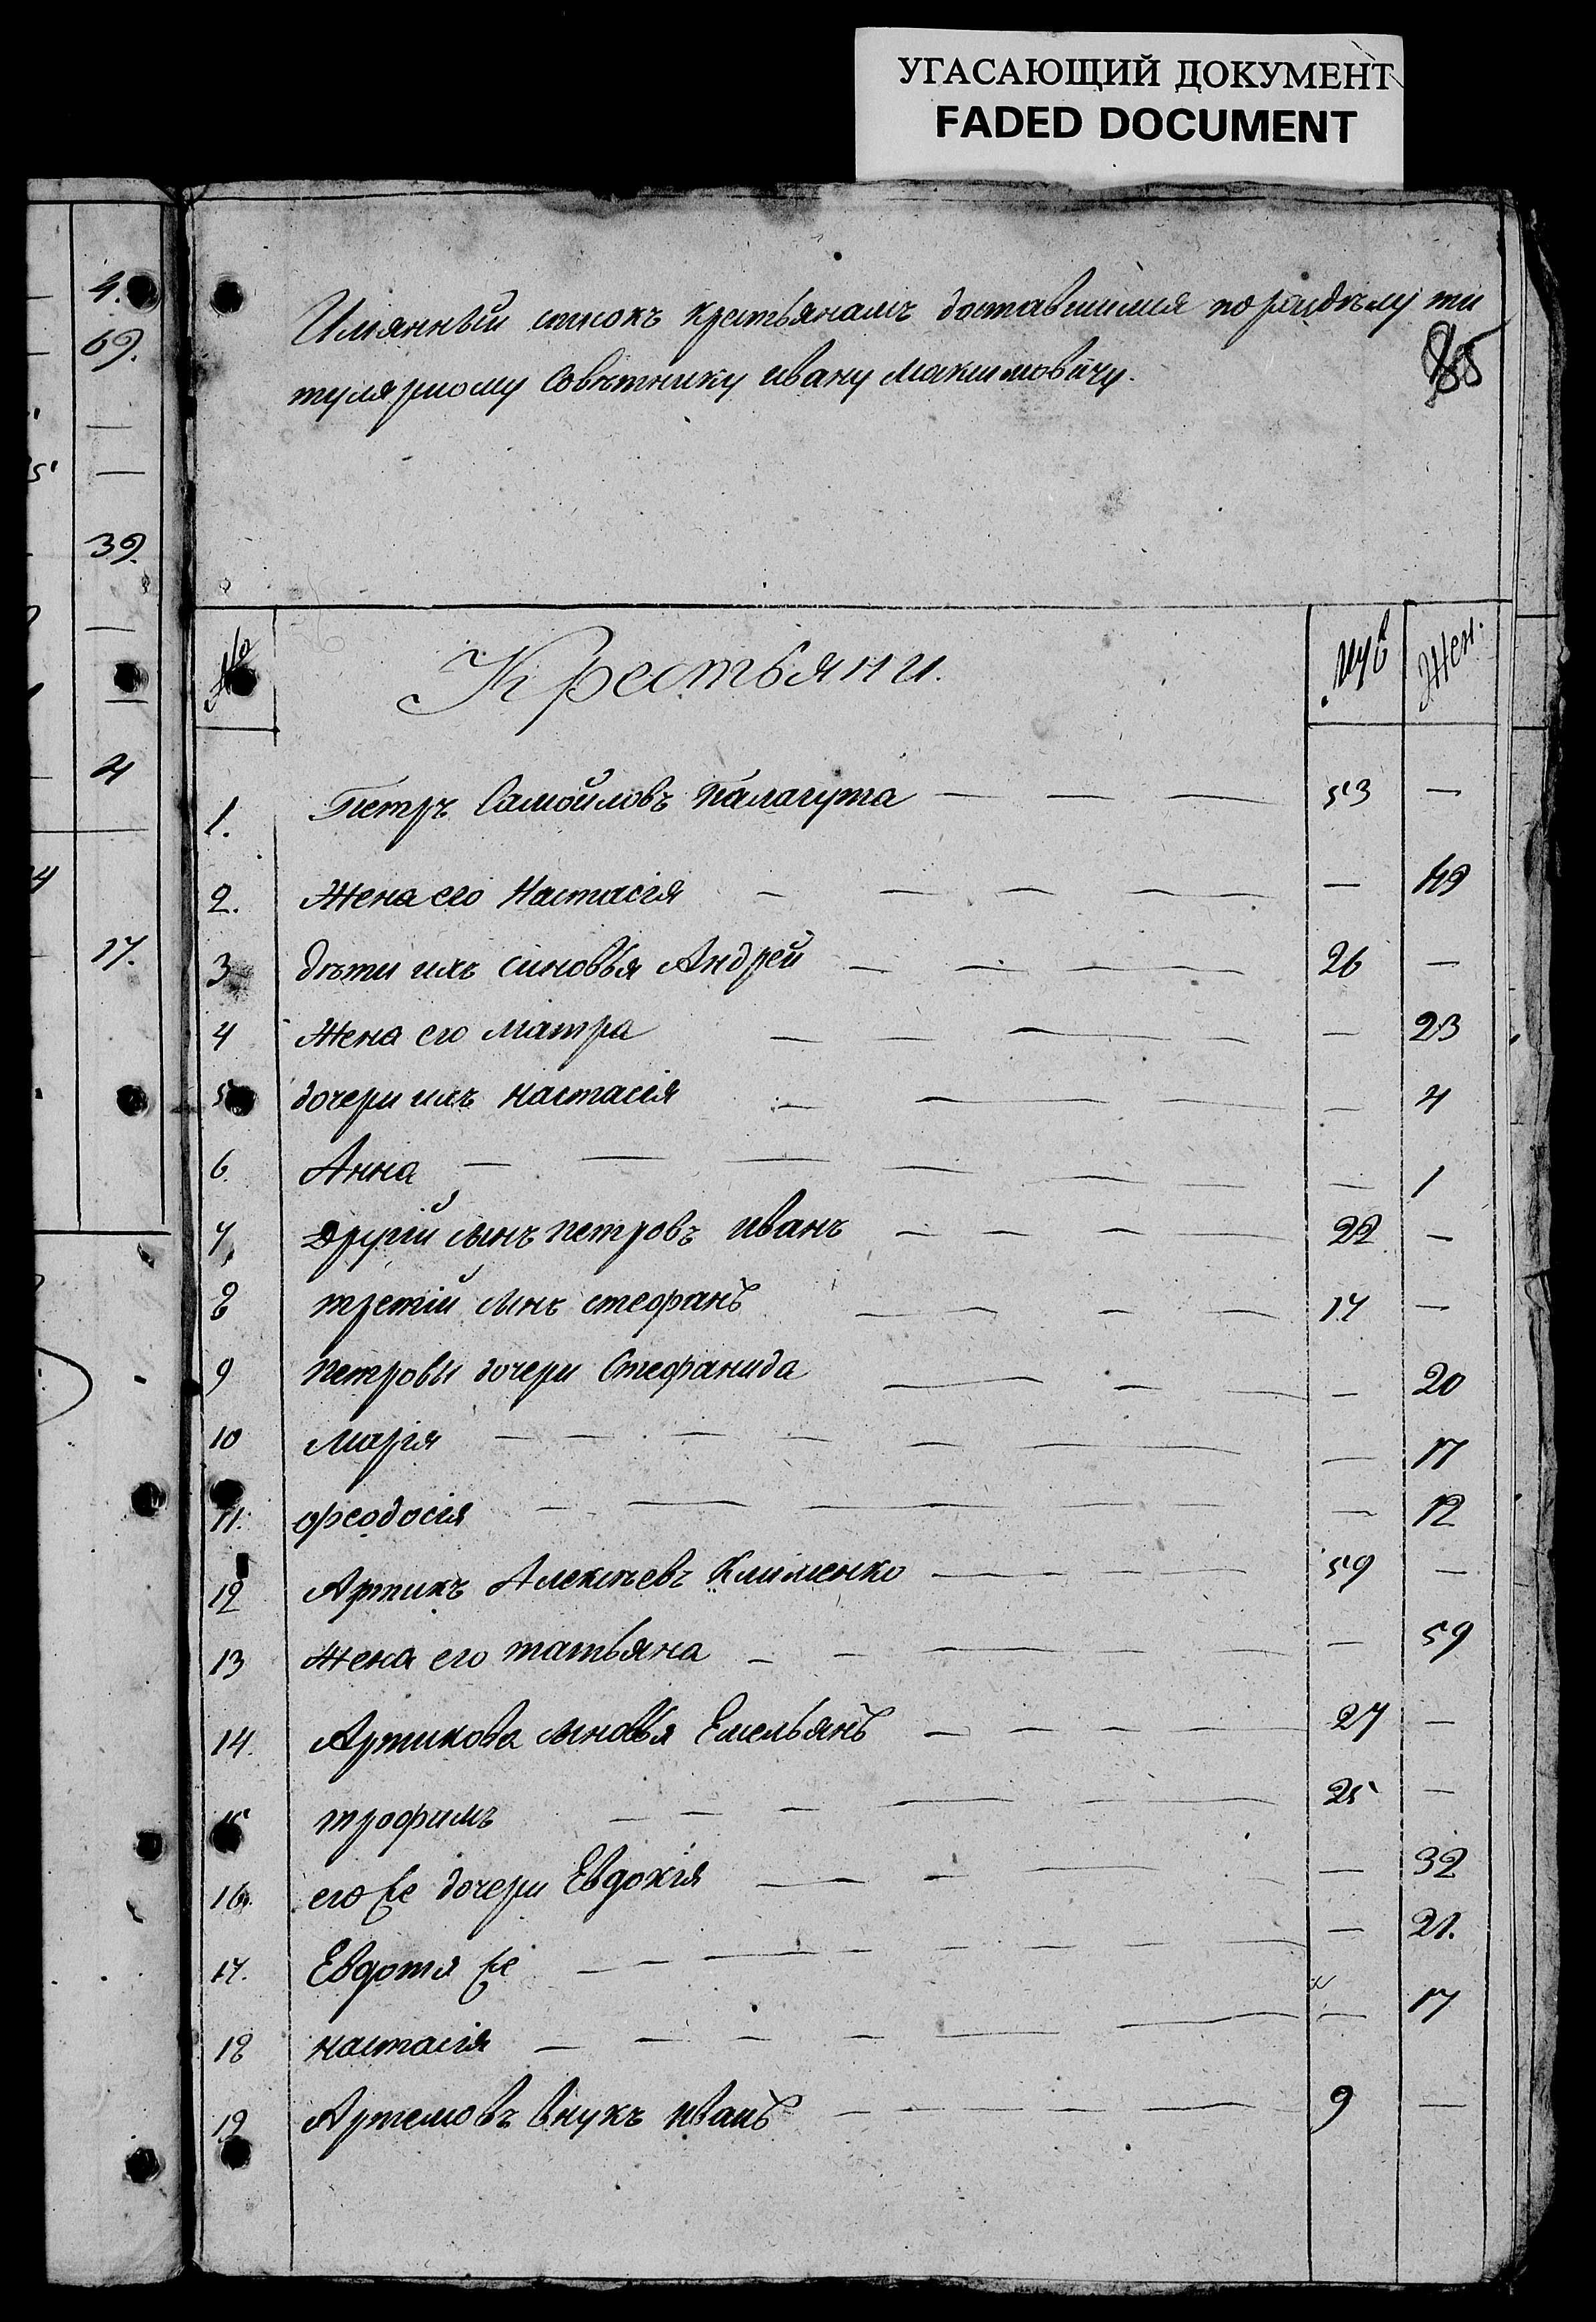 УГАСАЮЩИЙ ДОКУМЕНТ
FADED DOCUMENT
Имянный списокъ крестьянамъ доставшимся по раздѣлу ти
тулярному Совѣтнику ивану максимовичу.
85
№ Крестьяни. муж Жен.
1. Петръ Самойловъ Палагута — — — 53 —
2. Жена его Настасія — — — — — — 49
3 дѣти ихъ синовья Андрей — — — — 26 —
4 Жена его матра — — — — — — 23
5 дочери ихъ настасія — — — — — 4
6. Анна — — — — — — — — 1
7 Другій сынъ петровъ иванъ — — — — 22 —
8 третій сынъ стефанъ — — — 17 —
9 петровы дочери Стефанида — — — — 20
10 марія — — — — — — — — 17
11. феодосія — — — — — — 12
12 Артикъ Алексѣевъ Клименко — — — — 59 —
13 Жена его татьяна — — — — — — — 59
14. Артикова сыновья Емельянъ — — — — 27 —
15 трофимъ — — — — — — 25 —
16. его же дочери Евдокія — — — — — — 32
17. Евдотя же — — — — — — — — 21.
18 настасія — — — — — — — 17
19 Артемовъ внукъ иванъ — — — — — — 9 —
4.
69.
—
—
39.
—
—
4
17.